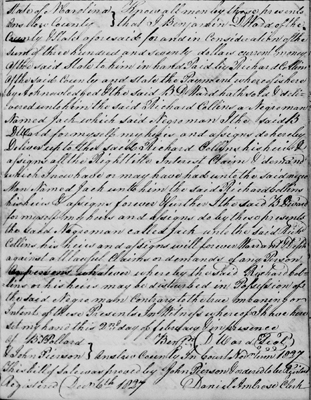 State of N Carolina } Know all men by these presents
Onslow County } that I Benjamin D Ward of the
County & State aforesaid for and in Consideration of the
sum of three hundred and seventy dollars current money
of the said State to him in hand Paid by Richard Collins
of the said County and State the Payment whereof is here
by Acknowledged I the said B D Ward hath sold & deliv
ered unto him the said Richard Collins a Negroman
Named Jack which said Negroman I the said B
D Ward for myself my heirs and assigns do hereby
Deliver up to the said Richard Collins his heirs &
assigns all the Right title Interest Claim & demand
which I now have or may have had unto the said negro
Man Named Jack unto him the said Richard Collins
his heirs & assigns forever & further I the said B D Ward
for myself my heirs and assigns do by these presents
the said Negroman called Jack unto the said Richd
Collins his heirs and assigns will forever Warrant & Defend
against all lawful Claims or demands of any Person
or persons whatever whereby the said Richard Col
lins or his heirs may be disturbed in Possession of
the said Negro man Contrary to the true meaning or
Intent of these Presents In Witness whereof I have here
set my hand this 22d day of february In presence
of
B Pollard } Benjn D Ward (Seal)
John Pierson } Onslow County In Court Nov Term 1827
This bill of sale was proved by John Pierson & ordered to be Registered
Registered Dec 16th 1827 Daniel Ambrose Clerk